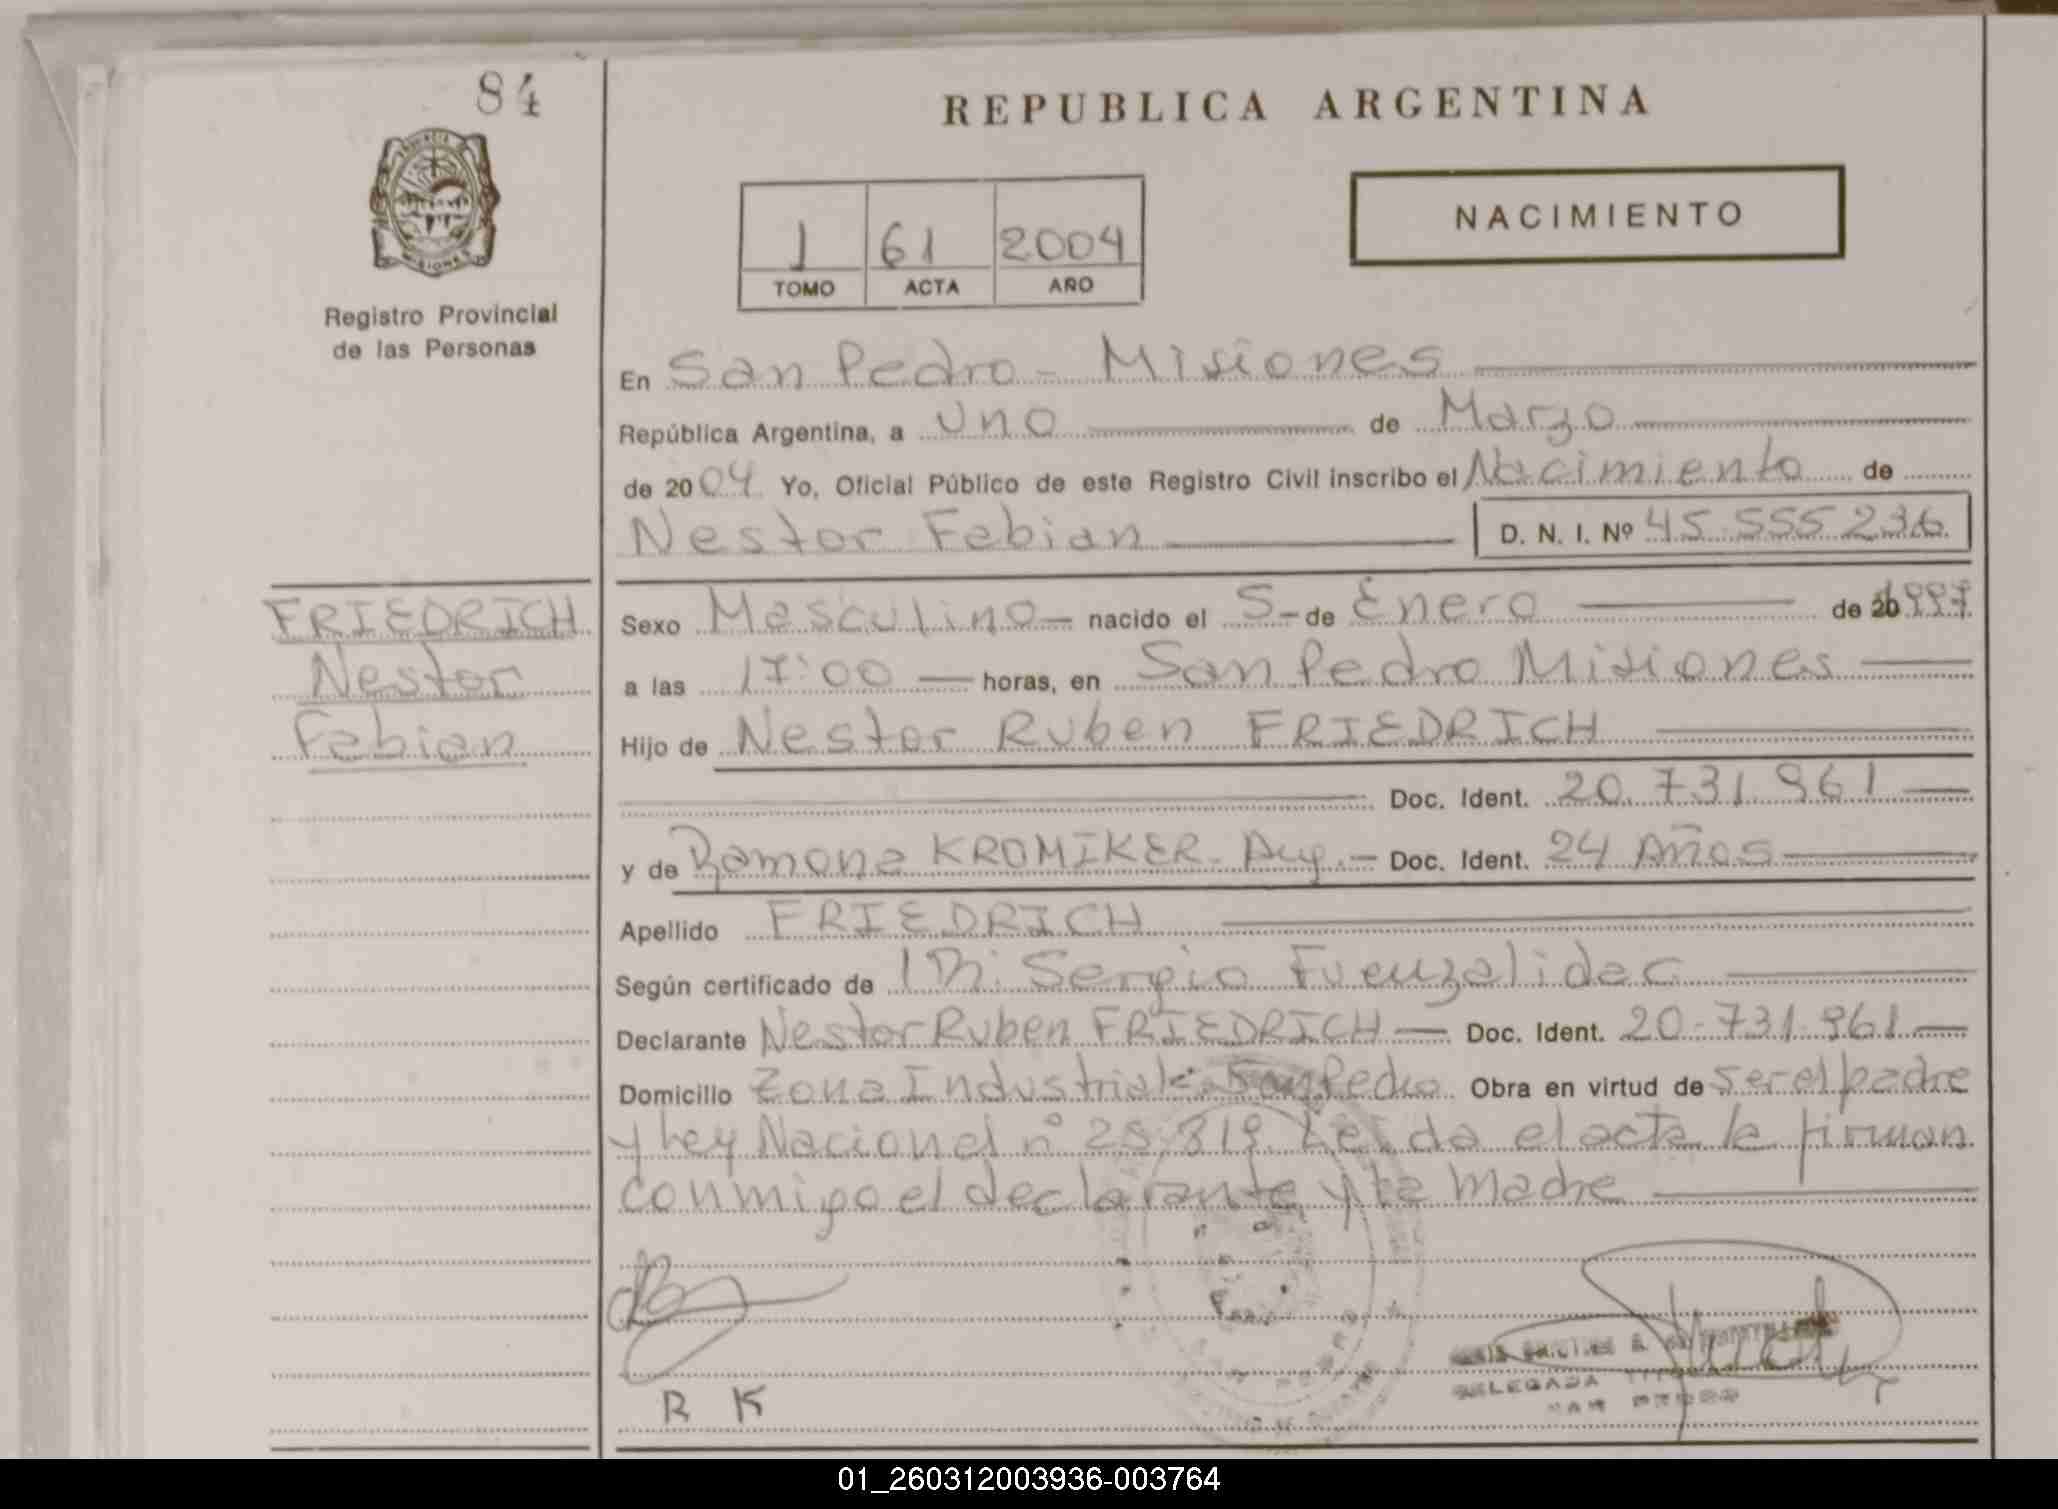 84
REPUBLICA ARGENTINA
PROVINCIA
MISIONES
Registro Provincial
de las Personas
NACIMIENTO
1 61 2004
TOMO ACTA AÑO
En San Pedro - Misiones
República Argentina, a uno de Marzo
de 2004 Yo, Oficial Público de este Registro Civil inscribo el Nacimiento de
Nestor Fabian D. N. I. Nº 45.555.236
FRIEDRICH
Nestor
Fabian
Sexo Masculino nacido el 5 de Enero de 1997
a las 17:00 horas, en San Pedro Misiones
Hijo de Nestor Ruben FRIEDRICH
Doc. Ident. 20.731.961
y de Ramona KROMIKER - Arg. Doc. Ident. 24 Años
Apellido FRIEDRICH
Según certificado de Sergio Fuenzalida
Declarante Nestor Ruben FRIEDRICH Doc. Ident. 20.731.961
Domicilio Zona Industrial San Pedro Obra en virtud de ser el padre
y Ley Nacional nº 25.819. Leída el acta la firman
conmigo el declarante y la madre
R K
DELEGADA TITULAR
SAN PEDRO
01_260312003936-003764